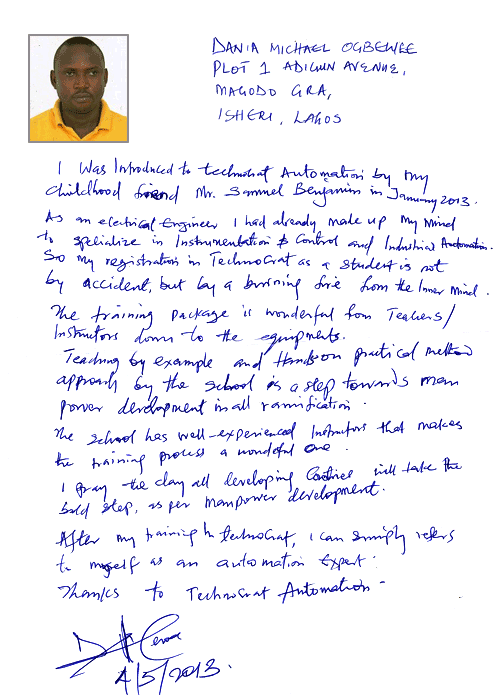 DANIA MICHAEL OGBEWEE
PLOT 1 ADIGUN AVENUE,
MAGODO GRA,
ISHERI, LAGOS
I Was Introduced to technocrat Automation by my
childhood friend Mr. Samuel Benjamin in January 2013.
As an electrical Engineer I had already made up my Mind
to specialize in Instrumentation & Control and Industrial Automation.
So my registration in Technocrat as a student is not
by accident, but by a burning fire from the Inner Mind.
The training package is wonderful from Teachers/
Instructors down to the equipments.
Teaching by example and Hands on practical method
approach by the school is a step towards man
power development in all ramification.
The school has well-experienced Instructors that makes
the training process a wonderful one.
I pray the day all developing Countries will take the
bold step, as per manpower development.
After my training in technocrat, i can simply refers
to myself as an automation expert.
Thanks to Technocrat Automation -
4/5/2013.